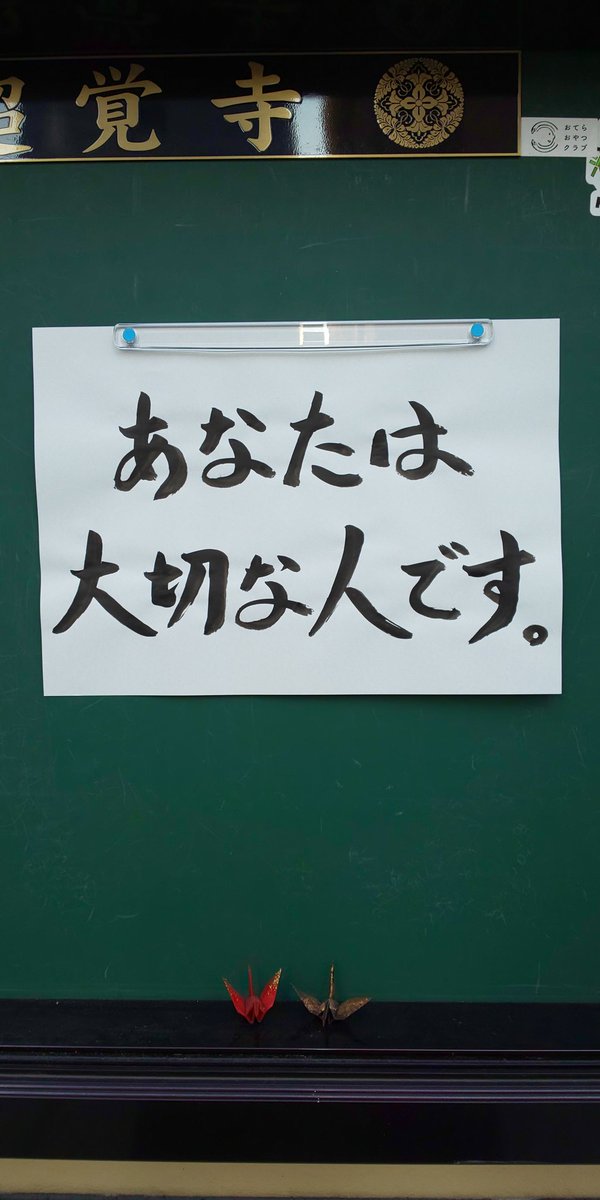 超覚寺
おてら
おやつ
クラブ
あなたは
大切な人です。